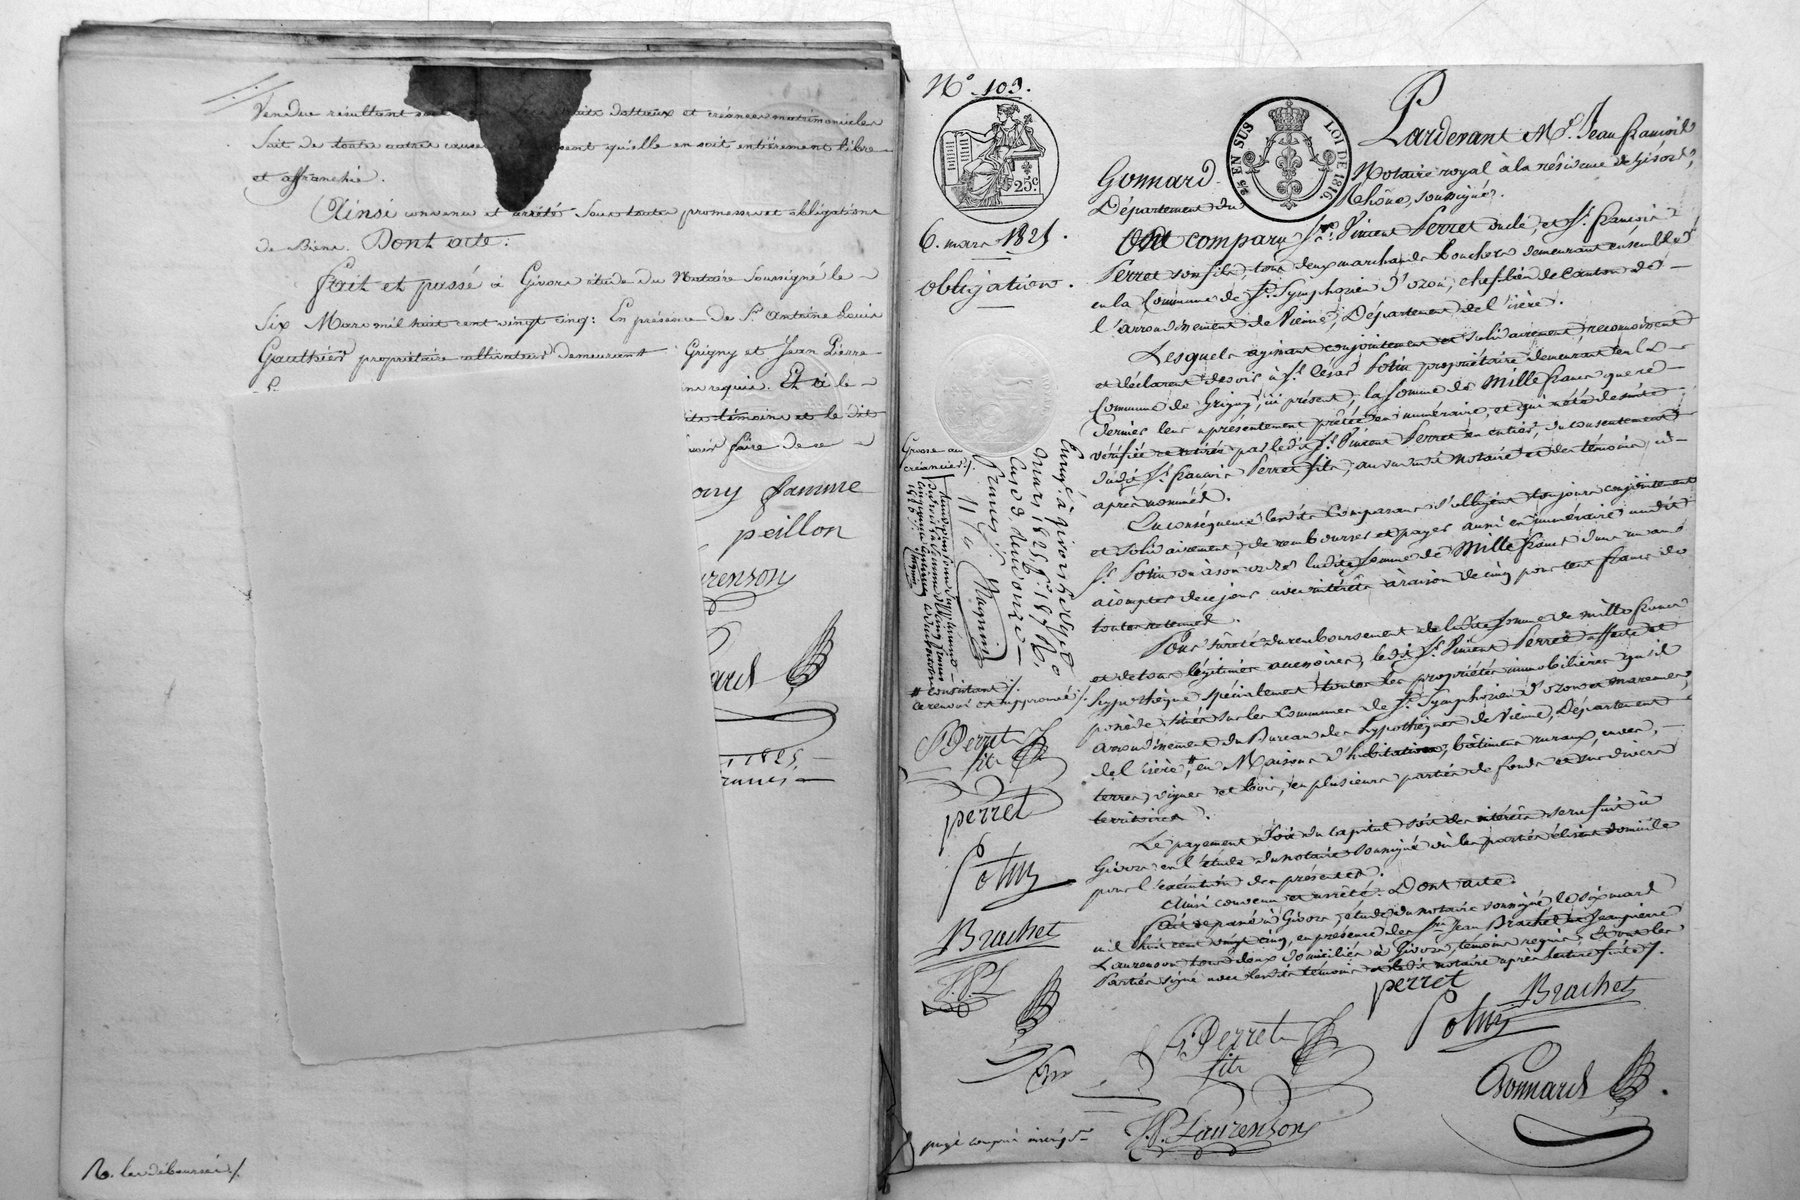 Vendue résultant soit
droits dotaux et créances matrimoniales
soit de toute autre cause
qu'elle en soit entièrement libre
et affranchie.
Ainsi convenu et arrêté sous toutes promesses et obligations
de Biens. Dont acte.
Fait et passé à Givors étude du Notaire soussigné le
Six Mars mil huit cent vingt cinq: En présence de Sr. Antoine Louis
Gauthier propriétaire cultivateur demeurant Grigny et Jean Pierre
requis. Et a le
témoins et le dit
faire de ce
ony famme
peillon
renson
ard
1825
francs
les déboursés
N° 103.
25c
25 EN SUS
LOI DE 1816
6. mars 1825.
obligation.
Pardevant Me. Jean françois
Gonnard Notaire royal à la résidence de Givors,
Département du Rhône, soussigné.
Ont comparu Srs. Vincent Perret oncle, et Sr. françois
Perret son fils, tous deux marchands Bouchers demeurant ensemble
en la Commune de St. Symphorien d'ozon, chef lieu de Canton de
l'arrondissement de Vienne, Département de l'isère.
Lesquels agissant conjointement et solidairement, reconnoissent
et déclarent devoir à Sr. César Potin propriétaire demeurant en la
Commune de Grigny, ici présent, la somme de Mille francs que ce
dernier leur a présentement prêtée en numéraire, et qui a été de suite
vérifiée et retirée par ledit Sr. Vincent Perret en entier, du consentement
dudit Sr. françois Perret fils, au vu dudit notaire et des témoins ci-
après nommés.
En conséquence lesdits Comparans s'obligent toujours conjointement
et solidairement, de rembourser et payer aussi en numéraire audit
Sr. Potin ou à son ordre ladite somme de Mille francs dans un an
à compter de ce jour avec intérêts à raison de cinq pour cent francs de
toutes retenues.
Pour sûreté du remboursement de ladite somme de mille francs
et de tous légitimes accessoires, ledit Sr. Vincent Perret affecte et
hypothèque spécialement toutes les propriétés immobilières qu'il
possède situées sur les Communes de St. Symphorien d'ozon et marennes,
arrondissement du Bureau des hypothèques de Vienne, Département
de l'isère, # en Maisons d'habitation, bâtimens ruraux, cours,
terres, vignes et bois, en plusieurs parties de fonds et sur divers
territoires.
Le payement soit du capital soit des intérêts sera fait à
Givors en l'étude du notaire soussigné où les parties élisent domicile
pour l'exécution des présentes.
Ainsi convenu et arrêté. Dont acte.
Fait et passé à Givors, étude du notaire soussigné le six mars
mil huit cent vingt cinq, en présence des Srs. Jean Brachet et Jean pierre
Laurenson tous deux domiciliés à Givors, témoins requis, Et ont les
Parties signé avec lesdits témoins et ledit notaire après lecture faite
Grosse au
créancier
Enregé. à Givors le
mars 1825 fo. 187 Ro
Ca. 3
# consistant
ce renvoi est approuvé
fs Perret
fils
perret
Potin
Brachet
J.P.L
perret
Brachet
Potin
fs Perret
fils
Gonnard
J.P. Laurenson